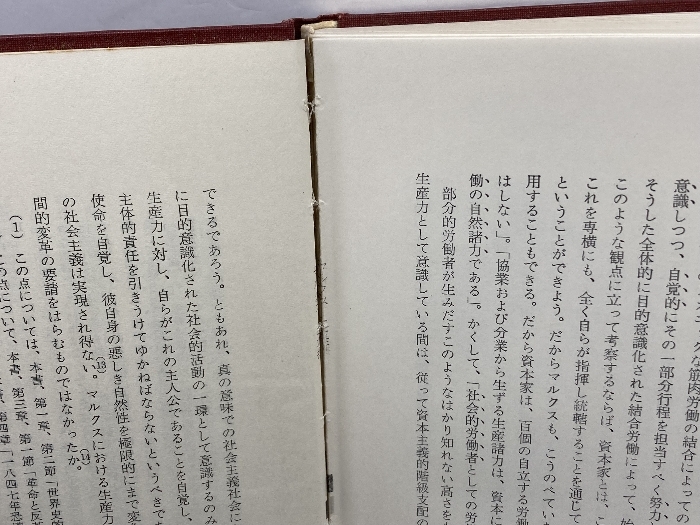 クな筋肉労働の結合によっての
意識しつつ、自覚的にその一部分行程を担当すべく努力
そうした全体的に目的意識化された結合労働によって、
このような観点に立って考察するならば、資本家とは、こ
これを専横にも、全く自らが指揮し統轄することを通じて
ということができよう。だからマルクスも、こうのべてい
用することもできる。だから資本家は、百個の自立する労働
はしない」。「協業および分業から生ずる生産諸力は、資本に
働の自然諸力である」。かくして、「社会的労働者としての労
部分的労働者が生みだすこのようなはかり知れない高さをな
生産力として意識している間は、従って資本主義的階級支配の
できるであろう。ともあれ、真の意味での社会主義社会に
に目的意識化された社会的活動の一環として意識するのみ
生産力に対し、自らがこれの主人公であることを自覚し、
主体的責任を引きうけてゆかねばならないというべきであ
使命を自覚し、彼自身の悪しき自然性を極限的にまで変
の社会主義は実現され得ない。(13)マルクスにおける生産力
間的変革の要請をはらむものではなかったか。(14)
(1) この点については、本書、第一章、第二節「世界史的
この点について、本書、第三章、第一節「革命と反革
第四章「一八四七年恐